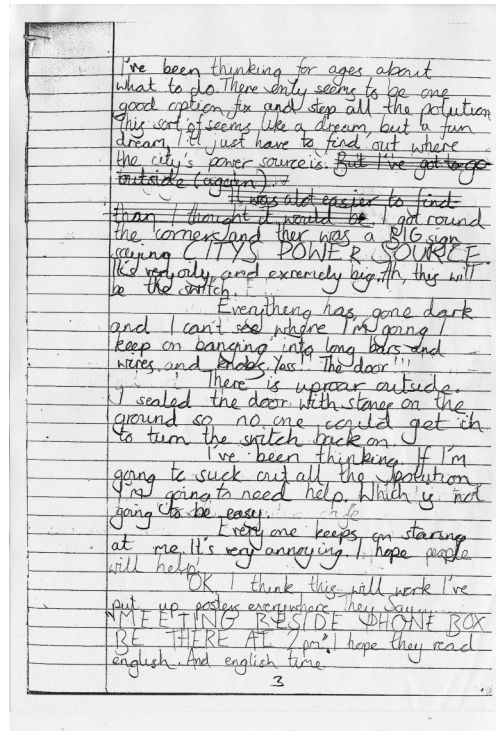 I've been thinking for ages about
what to do. There only seems to be one
good option, fix and stop all the polution
This sort of seems like a dream, but a fun
dream, I'll just have to find out where
the city's power source is. But I've got to go
outside (again).
It was alot easier to find
than I thought it would be. I got round
the corner and ther was a BIG sign
saying CITYS POWER SOURCE.
It's very oily and extremely big. Ah, this will
be the switch.
Everything has gone dark
and I can't see where I'm going I
keep on banging into long bars and
wires and knobs. Yass!! The door!!!
There is uproar outside.
I sealed the door with stones on the
ground so no one could get in
to turn the switch back on.
I've been thinking. If I'm
going to suck out all the polution,
I'm going to need help. Which is not
going to be easy.
Every one keeps on staring
at me. It's very annoying. I hope people
will help.
OK I think this will work I've
put up posters everywhere They say...
"MEETING BESIDE PHONE BOX
BE THERE AT 2pm". I hope they read
english. And english time
3